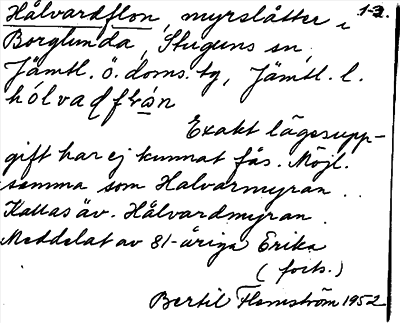 Hålvardflon, myrslåtter i 1-2.
Borglunda, Stuguns sn,
Jämtl. ö. doms. tg, Jämtl. l.
hólvadflån
Exakt lägesupp-
gift har ej kunnat fås. Möjl.
samma som Halvarmyran.
Kallas äv. Hålvardmyran.
Meddelat av 81-åriga Erika
(forts.)
Bertil Flemström 1952